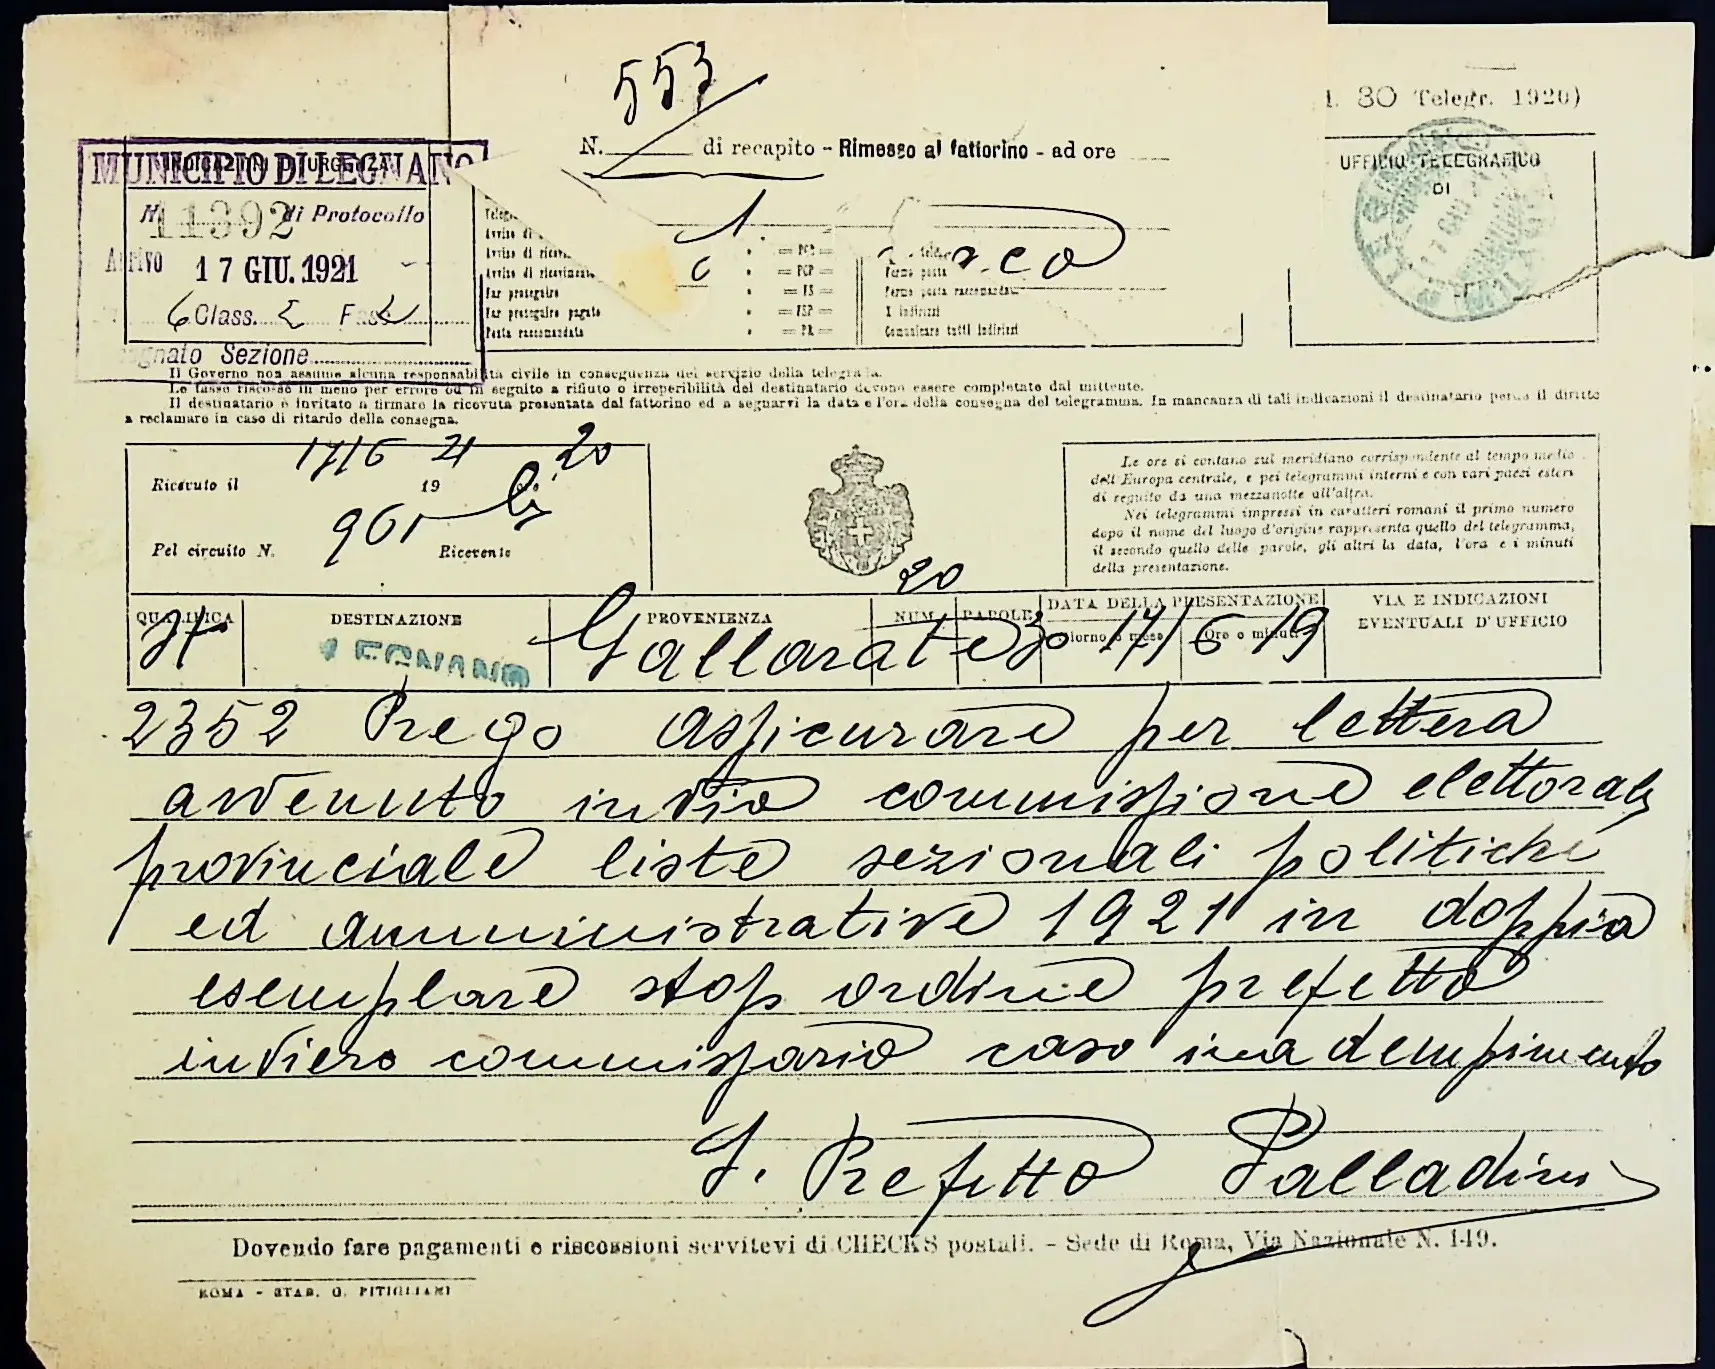 553
N. di recapito - Rimesso al fattorino - ad ore
30 Telegr. 1920)
MUNICIPIO DI LEGNANO
N. 11392 di Protocollo
Arrivo 17 GIU. 1921
6 Class. 2 Fasc. 2
Sezione
UFFICIO TELEGRAFICO
DI
Avviso di
= PCP =
Fermo posta
Far proseguire = FS = Fermo posta raccomandata
Far proseguire pagato = FSP = X indirizzi
Posta raccomandata = PR = Comunicare tutti indirizzi
Il Governo non assume alcuna responsabilità civile in conseguenza del servizio della telegrafia.
Le tasse riscosse in meno per errore od in seguito a rifiuto o irreperibilità del destinatario devono essere completate dal mittente.
Il destinatario è invitato a firmare la ricevuta presentata dal fattorino ed a segnarvi la data e l'ora della consegna del telegramma. In mancanza di tali indicazioni il destinatario perde il diritto
a reclamare in caso di ritardo della consegna.
Ricevuto il 17/6 1921 ore 20
Pel circuito N. 961 Ricevente
Le ore si contano sul meridiano corrispondente al tempo medio
dell'Europa centrale, e pei telegrammi interni e con vari paesi esteri
di seguito da una mezzanotte all'altra.
Nei telegrammi impressi in caratteri romani il primo numero
dopo il nome del luogo d'origine rappresenta quello del telegramma,
il secondo quello delle parole, gli altri la data, l'ora e i minuti
della presentazione.
QUALIFICA DESTINAZIONE PROVENIENZA NUM. PAROLE DATA DELLA PRESENTAZIONE VIA E INDICAZIONI
Giorno e mese Ore e minuti EVENTUALI D'UFFICIO
LEGNANO Gallarate 20 30 17/6 19
2352 Prego assicurare per lettera
avvenuto invio commissione elettorale
provinciale liste sezionali politiche
ed amministrative 1921 in doppio
esemplare stop ordine prefetto
inviero commissario caso inadempimento
S. Prefetto Palladino
Dovendo fare pagamenti e riscossioni servitevi di CHECKS postali. - Sede di Roma, Via Nazionale N. 149.
ROMA - STAB. G. PITIGLIANI